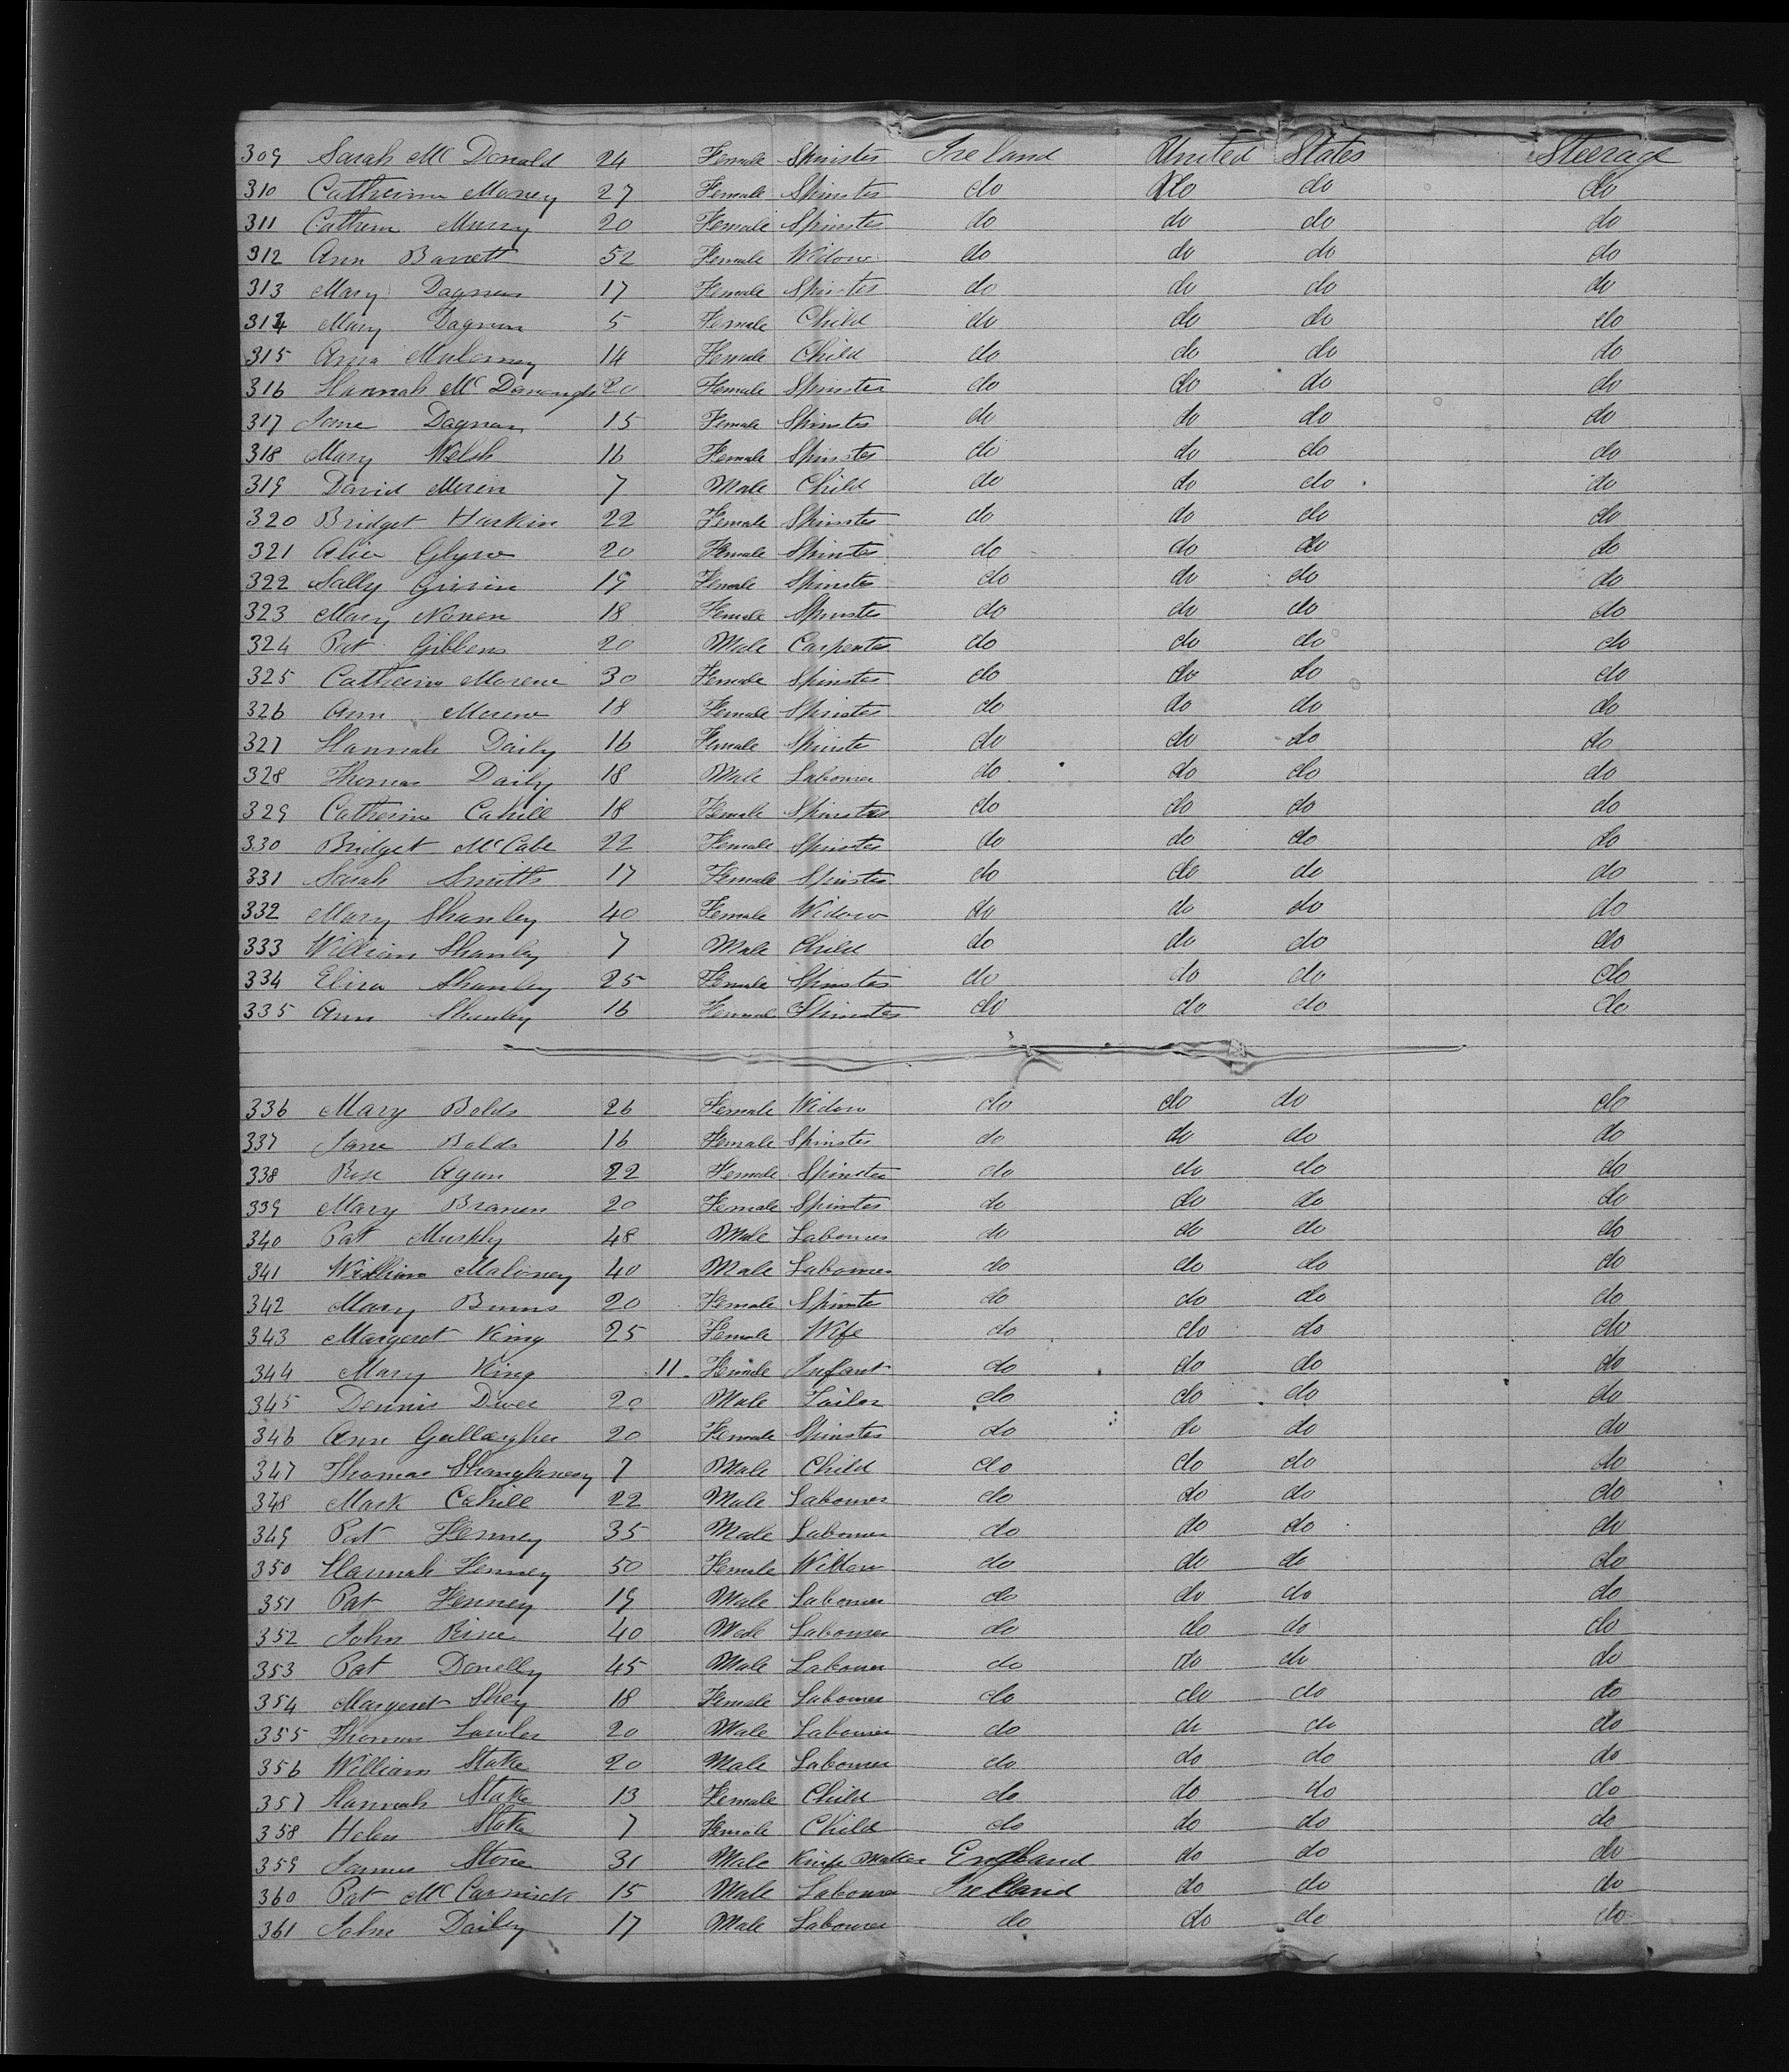 309 Sarah Mc Donald 24 Female Spinster Ireland United States Steerage
310 Catherine Maney 27 Female Spinster do do do do
311 Cathern Murry 20 Female Spinster do do do do
312 Ann Barrett 52 Female Widow do do do do
313 Mary Dagnan 17 Female Spinster do do do do
314 Mary Dagnan 5 Female Child do do do do
315 Ann 14 Female Child do do do do
316 Hannah Mc Donough 20 Female Spinster do do do do
317 Jane Dagnan 15 Female Spinster do do do do
318 Mary Welsh 16 Female Spinster do do do do
319 David Meren 7 Male Child do do do do
320 Bridget Harkin 22 Female Spinster do do do do
321 Alice Glynn 20 Female Spinster do do do do
322 Sally 19 Female Spinster do do do do
323 Mary Nonen 18 Female Spinster do do do do
324 Pat Gibbens 20 Male Carpenter do do do do
325 Catherine Morene 30 Female Spinster do do do do
326 Ann Morene 18 Female Spinster do do do do
327 Hannah Daily 16 Female Spinster do do do do
328 Thomas Daily 18 Male Labourer do do do do
329 Catherine Cahill 18 Female Spinster do do do do
330 Bridget McCabe 22 Female Spinster do do do do
331 Sarah Smith 17 Female Spinster do do do do
332 Mary Shanley 40 Female Widow do do do do
333 William Shanley 7 Male Child do do do do
334 Eliza Shanley 25 Female Spinster do do do do
335 Ann Shanley 16 Female Spinster do do do do
336 Mary Bolds 26 Female Widow do do do do
337 Jane Bolds 16 Female Spinster do do do do
338 Rose Agan 22 Female Spinster do do do do
339 Mary Branen 20 Female Spinster do do do do
340 Pat Murphy 48 Male Labourer do do do do
341 William Maloney 40 Male Labourer do do do do
342 Mary Burns 20 Female Spinster do do do do
343 Margeret King 25 Female Wife do do do do
344 Mary King 11 Female Infant do do do do
345 Dennis Dwer 20 Male Tailor do do do do
346 Ann Gallaegher 20 Female Spinster do do do do
347 Thomas Shaughnesy 7 Male Child do do do do
348 Mark Cahill 22 Male Labourer do do do do
349 Pat Fenney 35 Male Labourer do do do do
350 Hannah Fenney 50 Female Widow do do do do
351 Pat Fenney 19 Male Labourer do do do do
352 John Rine 40 Male Labourer do do do do
353 Pat Donelly 45 Male Labourer do do do do
354 Margeret Shey 18 Female Labourer do do do do
355 Thomas Lawler 20 Male Labourer do do do do
356 William Stake 20 Male Labourer do do do do
357 Hannah Stake 13 Female Child do do do do
358 Helen Stake 7 Female Child do do do do
359 James Stone 31 Male Knife Maker England do do do
360 Pat Mc Cormick 15 Male Labourer Ireland do do do
361 John Dailey 17 Male Labourer do do do do